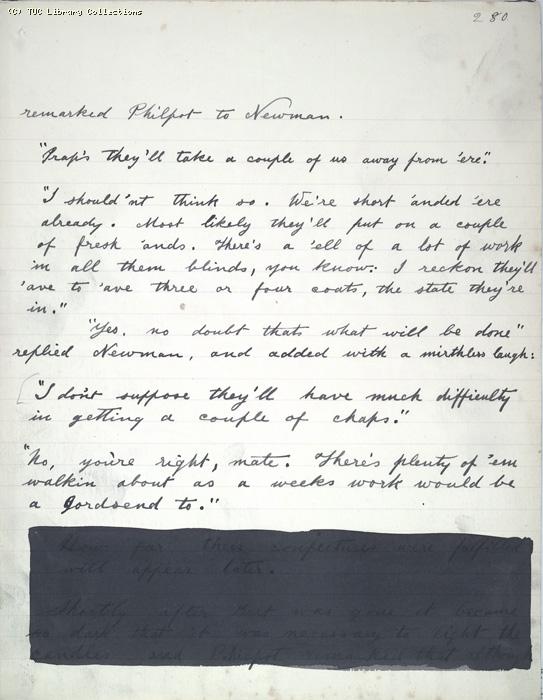 (C) TUC Library Collections
280
remarked Philpot to Newman.
"Prap's they'll take a couple of us away from 'ere."
"I should'nt think so. We're short 'anded 'ere
already. Most likely they'll put on a couple
of fresh 'ands. There's a 'ell of a lot of work
in all them blinds, you know: I reckon they'll
'ave to 'ave three or four coats, the state they're
in."
"Yes. no doubt thats what will be done"
replied Newman, and added with a mirthless laugh:
"I don't suppose they'll have much difficulty
in getting a couple of chaps."
"No, you're right, mate. There's plenty of 'em
walkin about as a weeks work would be
a Gordsend to."
How far these conjectures were fulfilled
will appear later.
Shortly after was gone it became
so dark that it was necessary to light the
candles and Philpot remarked that